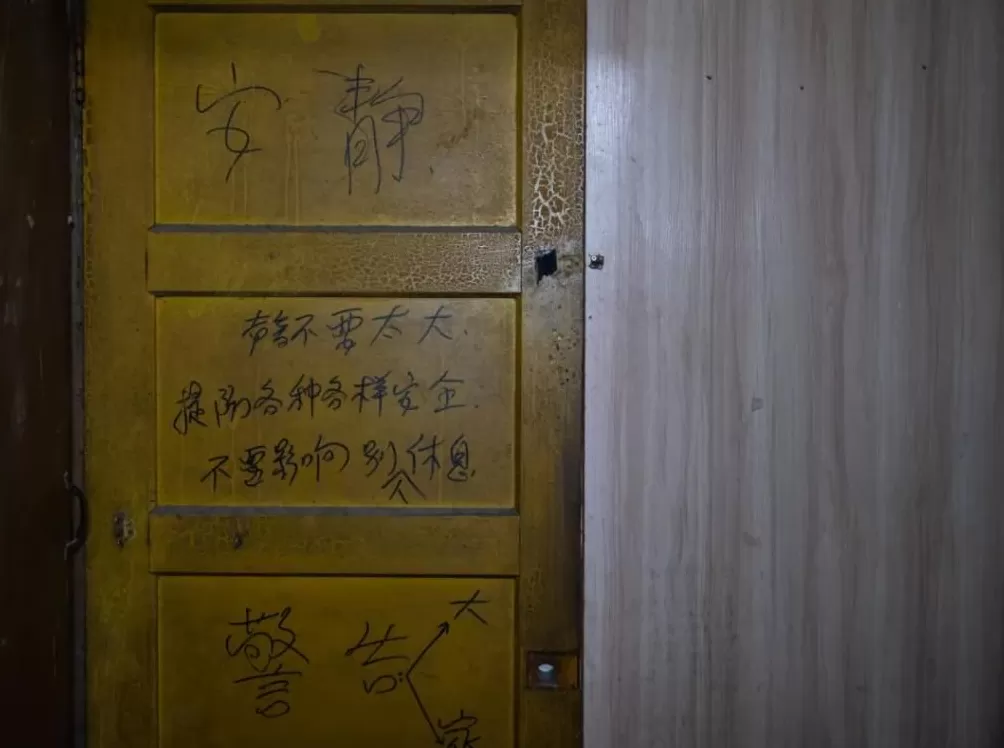 安静.
声音不要太大.
提防各种各样安全.
不要影响别人休息
警告大家